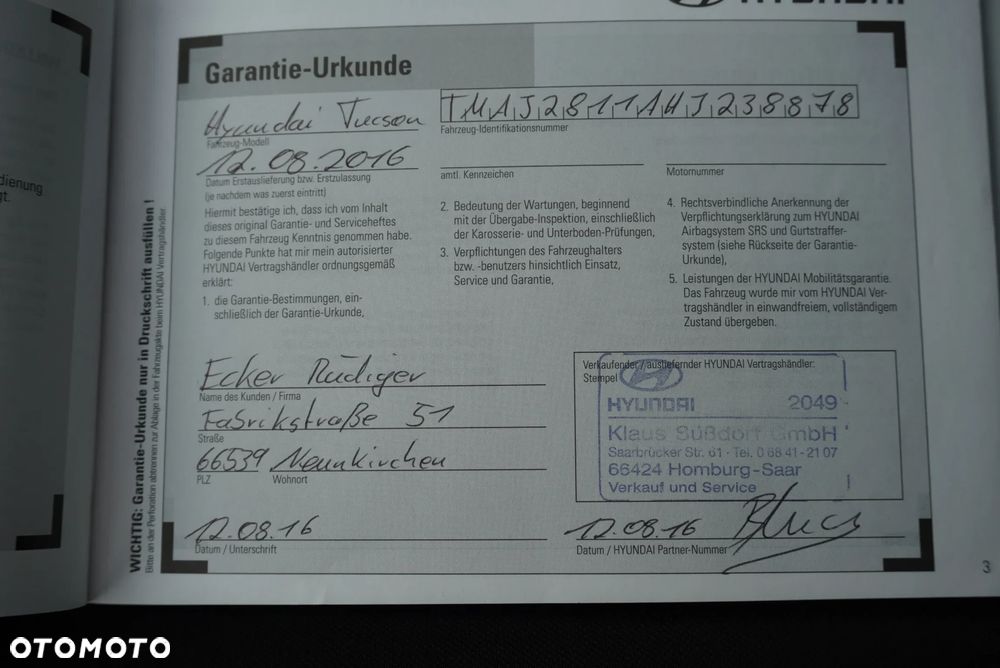 HYUNDAI
Garantie-Urkunde
Hyundai Tucson
Fahrzeug-Modell
TMAJ2811AHJ238878
Fahrzeug-Identifikationsnummer
12.08.2016
Datum Erstauslieferung bzw. Erstzulassung
(je nachdem was zuerst eintritt)
amtl. Kennzeichen
Motornummer
Hiermit bestätige ich, dass ich vom Inhalt
dieses original Garantie- und Serviceheftes
zu diesem Fahrzeug Kenntnis genommen habe.
Folgende Punkte hat mir mein autorisierter
HYUNDAI Vertragshändler ordnungsgemäß
erklärt:
1. die Garantie-Bestimmungen, ein-
schließlich der Garantie-Urkunde,
2. Bedeutung der Wartungen, beginnend
mit der Übergabe-Inspektion, einschließlich
der Karosserie- und Unterboden-Prüfungen,
3. Verpflichtungen des Fahrzeughalters
bzw. -benutzers hinsichtlich Einsatz,
Service und Garantie,
4. Rechtsverbindliche Anerkennung der
Verpflichtungserklärung zum HYUNDAI
Airbagsystem SRS und Gurtstraffer-
system (siehe Rückseite der Garantie-
Urkunde),
5. Leistungen der HYUNDAI Mobilitätsgarantie.
Das Fahrzeug wurde mir vom HYUNDAI Ver-
tragshändler in einwandfreiem, vollständigem
Zustand übergeben.
Ecker Rüdiger
Name des Kunden / Firma
Fabrikstraße 51
Straße
66539 Neunkirchen
PLZ Wohnort
12.08.16
Datum / Unterschrift
Verkaufender / ausliefernder HYUNDAI Vertragshändler:
Stempel
HYUNDAI 2049
Klaus Süßdorf GmbH
Saarbrücker Str. 61 · Tel. 0 68 41 - 21 07
66424 Homburg-Saar
Verkauf und Service
12.08.16
Datum / HYUNDAI Partner-Nummer
WICHTIG: Garantie-Urkunde nur in Druckschrift ausfüllen !
Bitte an der Perforation abtrennen zur Ablage in der Fahrzeugakte beim HYUNDAI Vertragshändler.
dienung
gt.
3
OTOMOTO